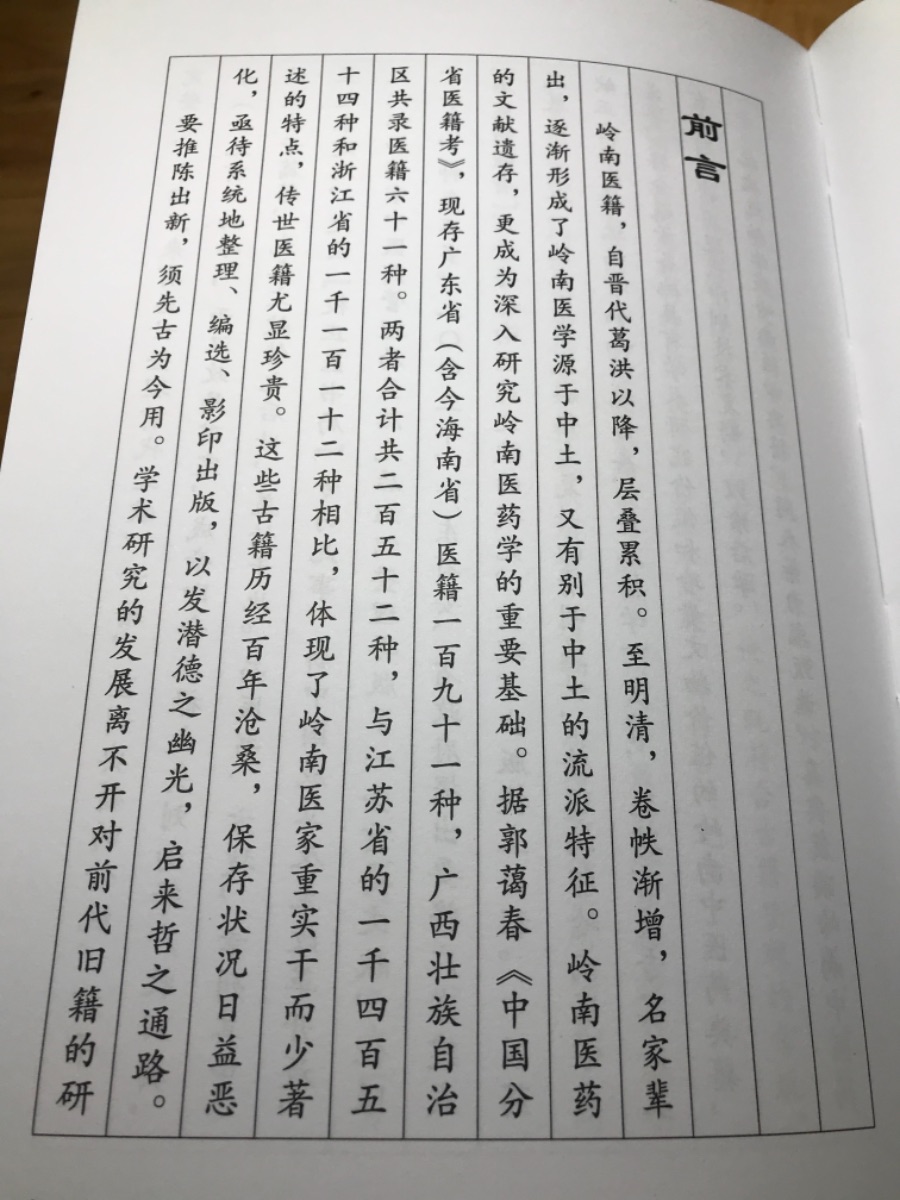 前言
岭南医籍，自晋代葛洪以降，层叠累积。至明清，卷帙渐增，名家辈
出，逐渐形成了岭南医学源于中土，又有别于中土的流派特征。岭南医药
的文献遗存，更成为深入研究岭南医药学的重要基础。据郭蔼春《中国分
省医籍考》，现存广东省（含今海南省）医籍一百九十一种，广西壮族自治
区共录医籍六十一种。两者合计共二百五十二种，与江苏省的一千四百五
十四种和浙江省的一千一百一十二种相比，体现了岭南医家重实干而少著
述的特点，传世医籍尤显珍贵。这些古籍历经百年沧桑，保存状况日益恶
化，亟待系统地整理、编选、影印出版，以发潜德之幽光，启来哲之通路。
要推陈出新，须先古为今用。学术研究的发展离不开对前代旧籍的研